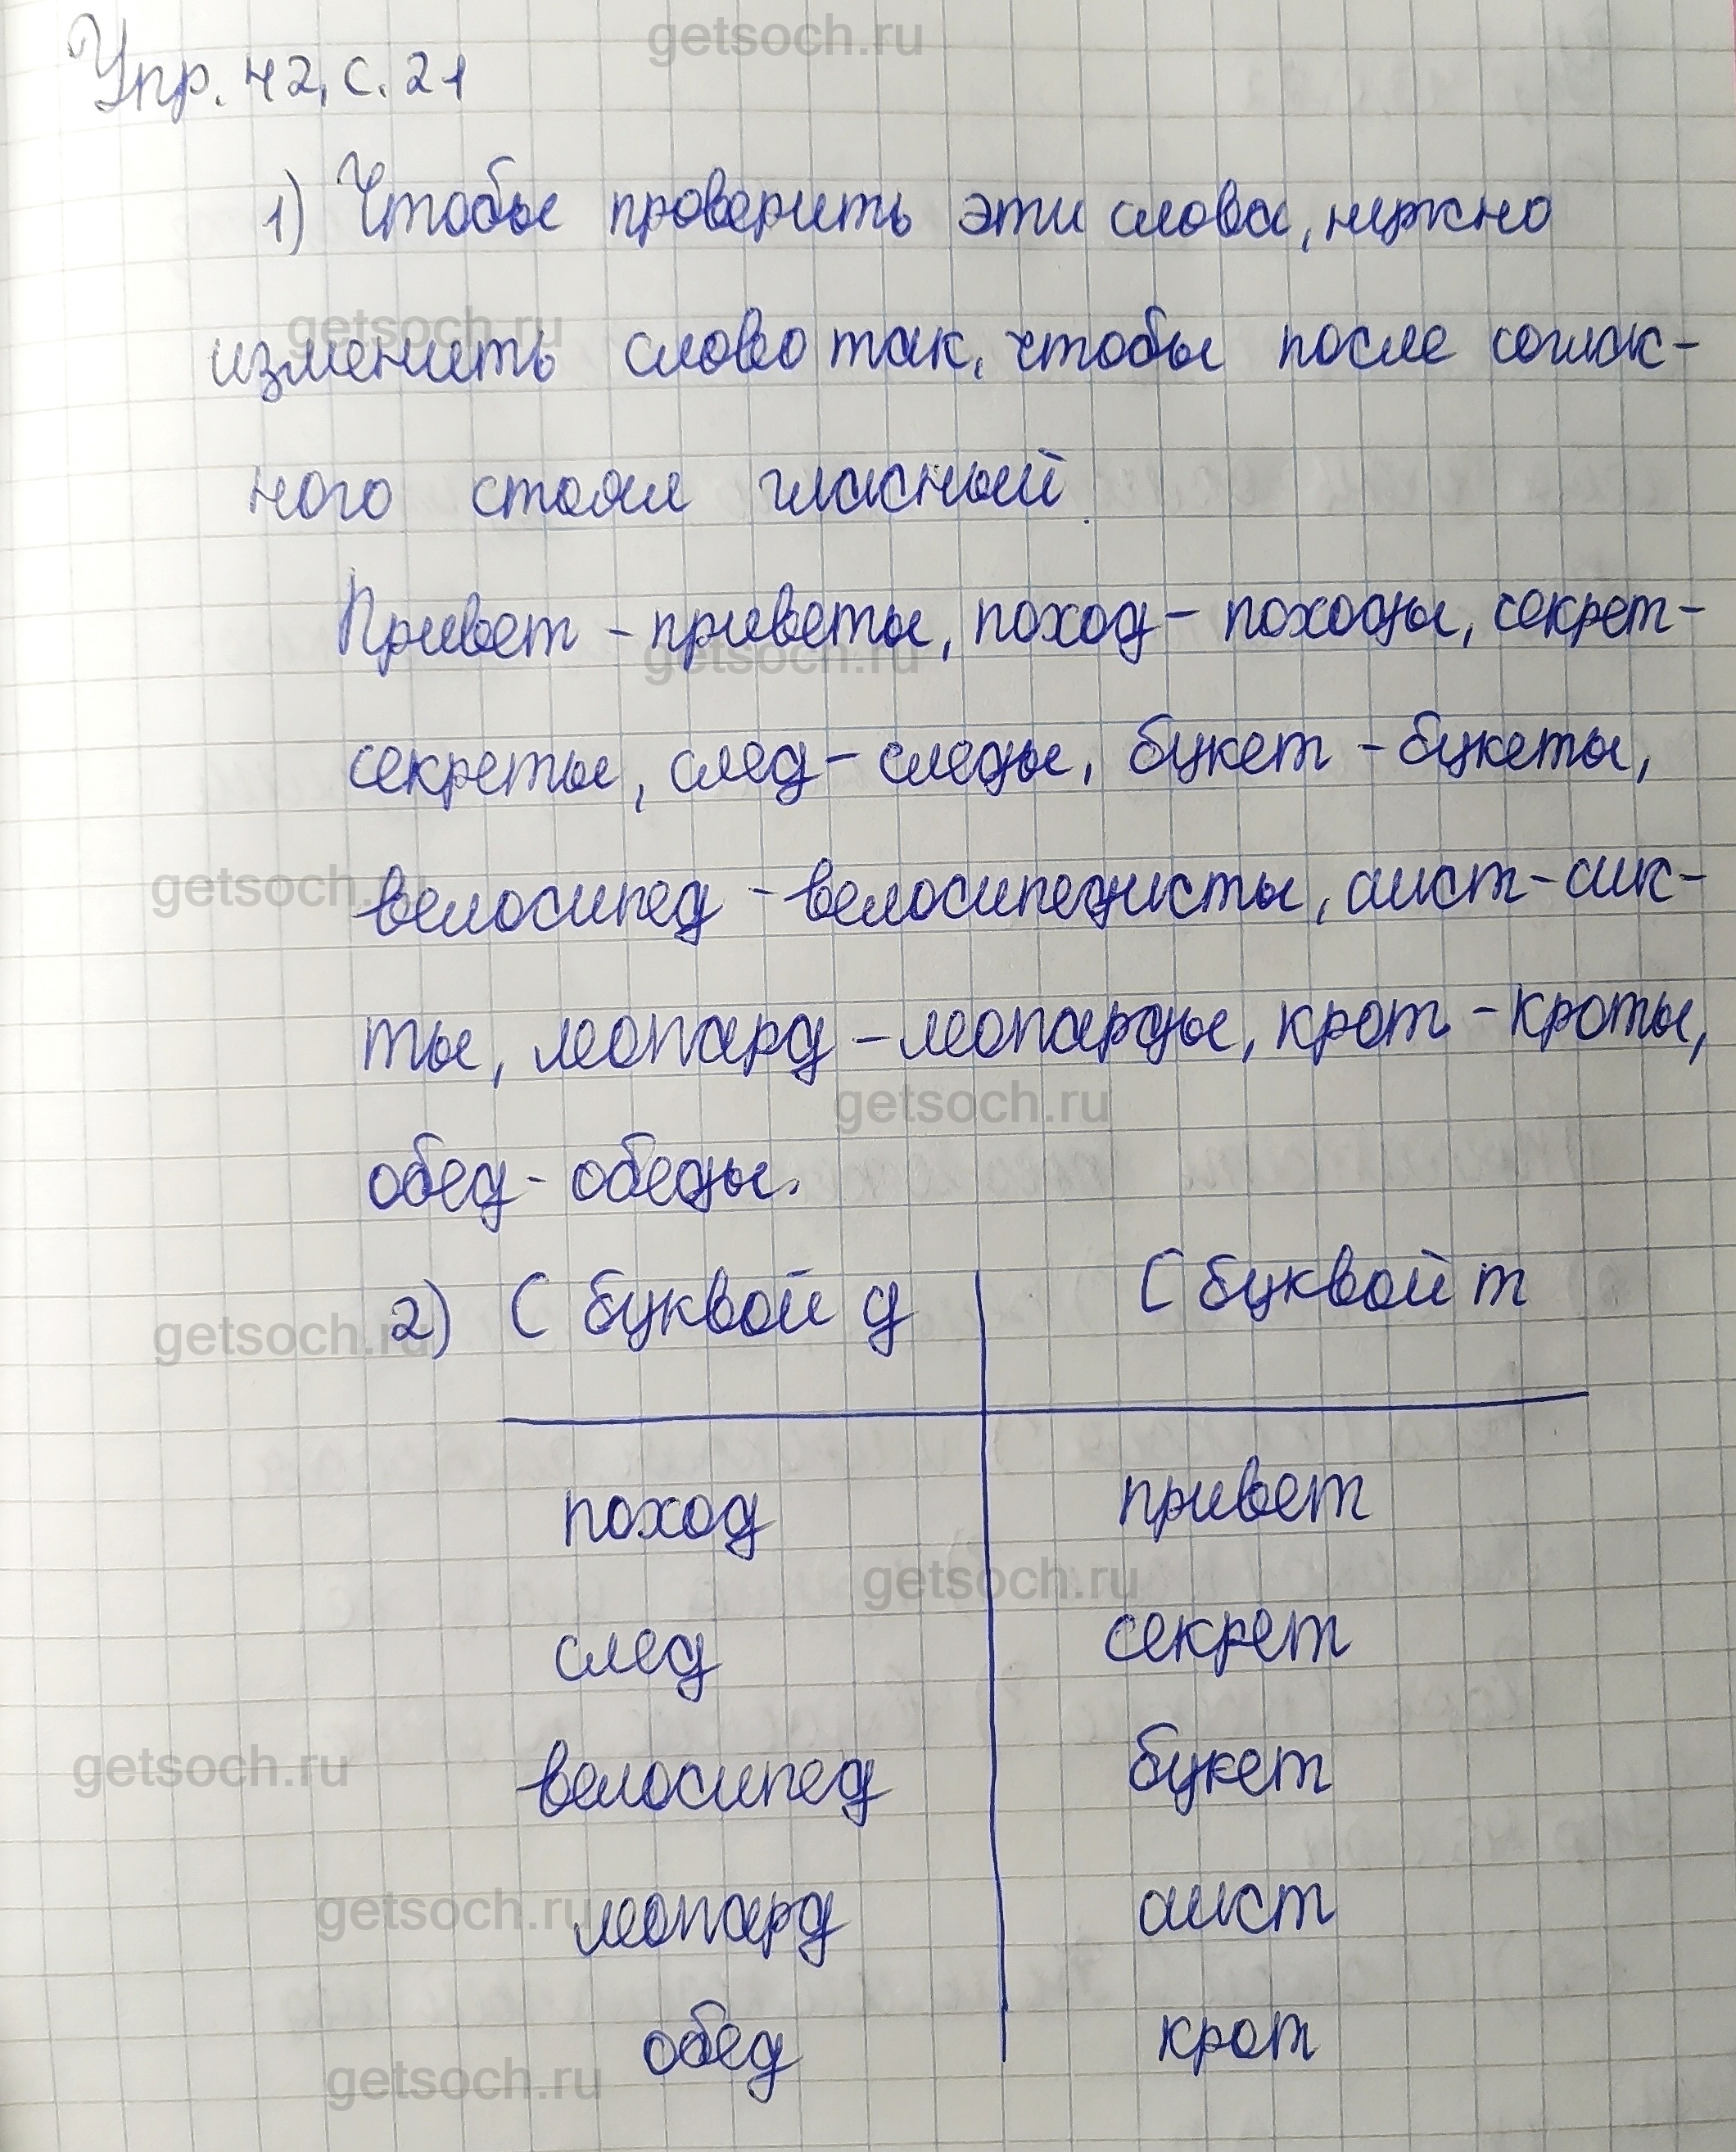 getsoch.ru
Упр. 42, с. 21
1) Чтобы проверить эти слова, нужно
getsoch.ru
изменить слово так, чтобы после соглас-
ного стоял гласный.
Привет - приветы, поход - походы, секрет -
getsoch.ru
секреты, след - следы, букет - букеты,
getsoch.ru
велосипед - велосипедисты, аист - аис-
ты, леопард - леопарды, крот - кроты,
getsoch.ru
обед - обеды.
2) С буквой д С буквой т
getsoch.ru
поход привет
getsoch.ru
след секрет
getsoch.ru
велосипед букет
getsoch.ru
леопард аист
обед крот
getsoch.ru